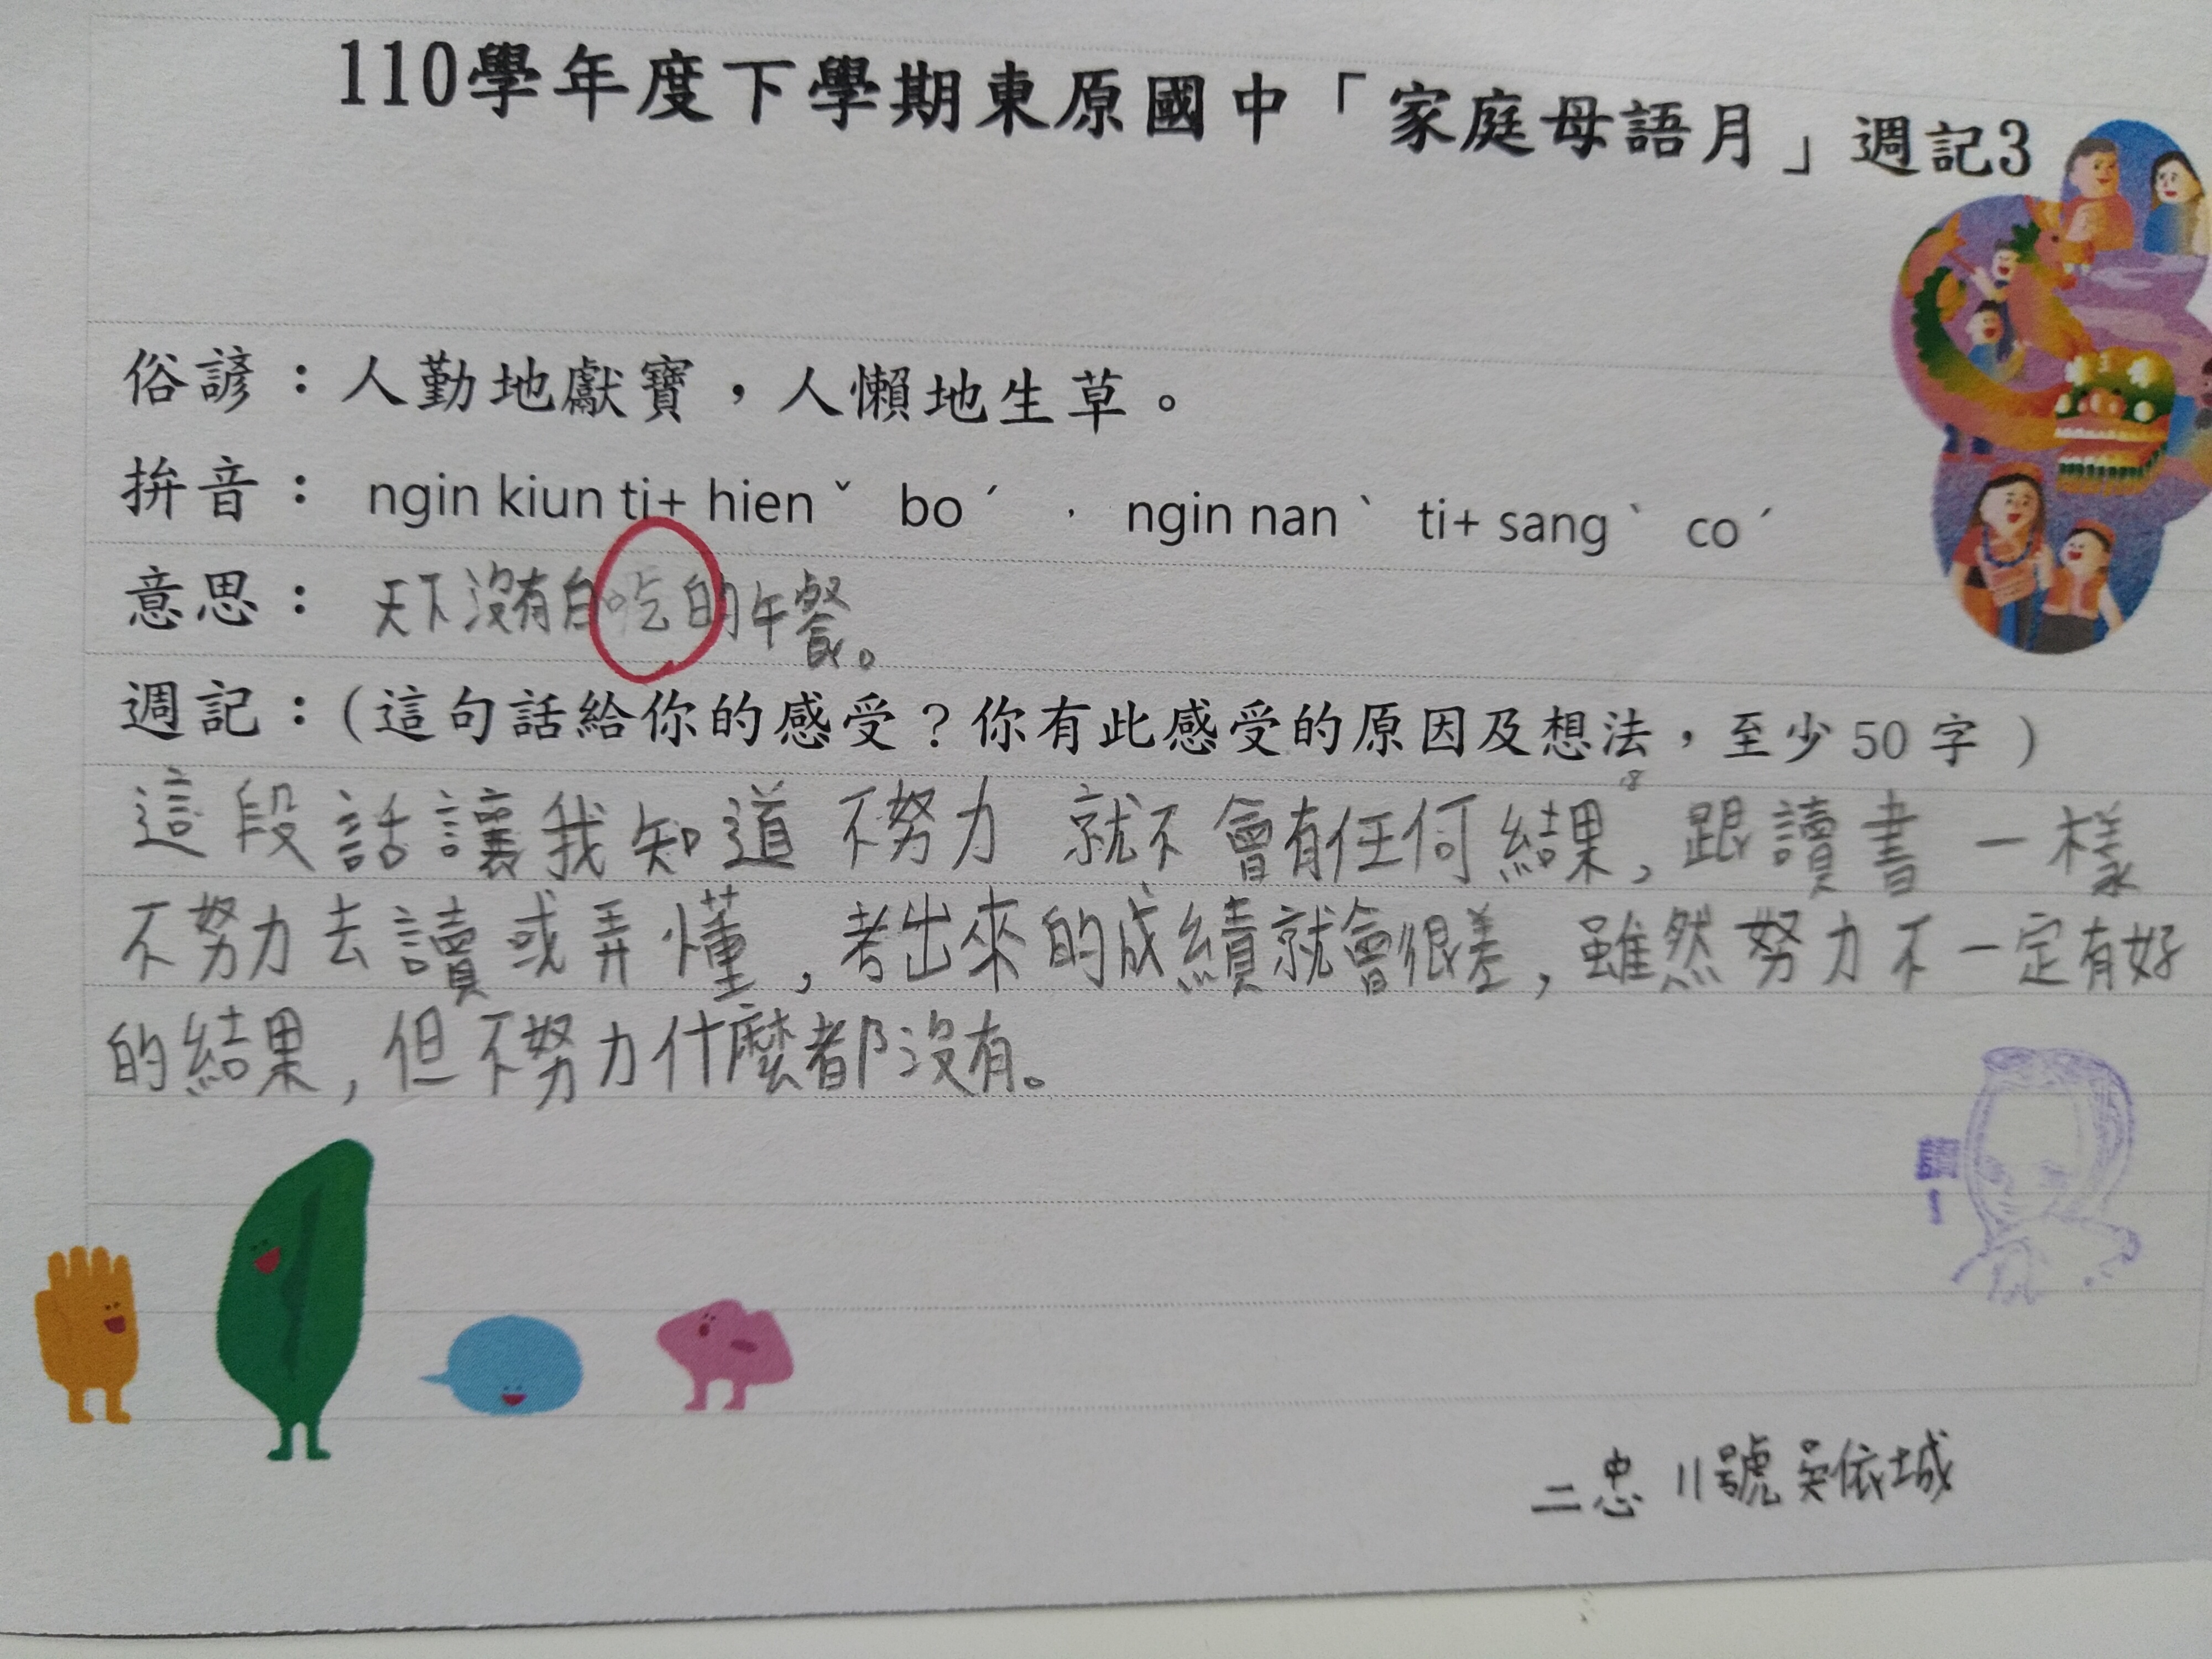 110學年度下學期東原國中「家庭母語月」週記3
俗諺：人勤地獻寶，人懶地生草。
拚音： ngin kiun ti+ hienˇ boˊ ， ngin nanˋ ti+ sangˋ coˊ
意思： 天下沒有白吃的午餐。
週記：(這句話給你的感受？你有此感受的原因及想法，至少 50 字 )
這段話讓我知道 不努力 就不會有任何結果, 跟讀書一樣
不努力去讀或弄懂, 考出來的成績就會很差, 雖然努力不一定有好
的結果, 但不努力什麼都沒有。
二忠 11號 吳依城